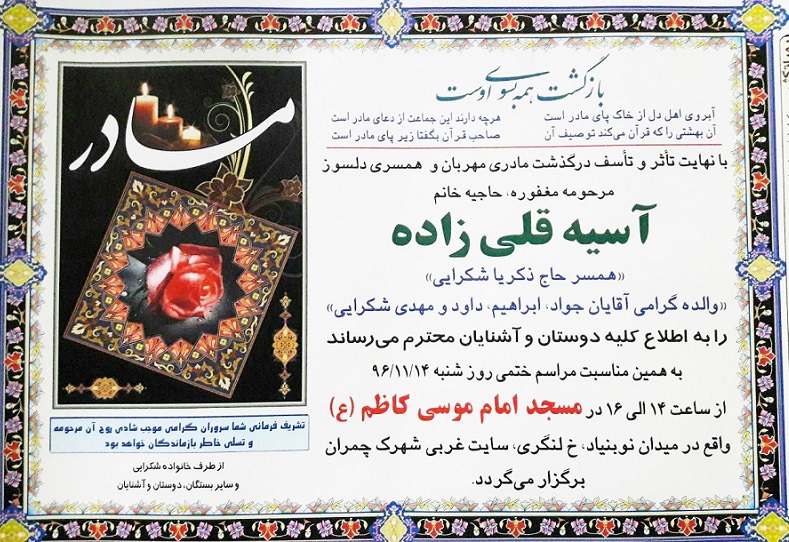 بازگشت همه بسوی اوست
آبروی اهل دل از خاک پای مادر است
هرچه دارند این جماعت از دعای مادر است
آن بهشتی را که قرآن می‌کند توصیف آن
صاحب قرآن بگفتا زیر پای مادر است
با نهایت تأثر و تأسف درگذشت مادری مهربان و همسری دلسوز
مرحومه مغفوره، حاجیه خانم
آسیه قلی زاده
«همسر حاج ذکریا شکرایی»
«والده گرامی آقایان جواد، ابراهیم، داود و مهدی شکرایی»
را به اطلاع کلیه دوستان و آشنایان محترم می‌رساند
به همین مناسبت مراسم ختمی روز شنبه ۹۶/۱۱/۱۴
از ساعت ۱۴ الی ۱۶ در مسجد امام موسی کاظم (ع)
واقع در میدان نوبنیاد، خ لنگری، سایت غربی شهرک چمران
برگزار می‌گردد.
مادر
تشریف فرمائی شما سروران گرامی موجب شادی روح آن مرحومه
و تسلی خاطر بازماندگان خواهد بود
از طرف خانواده شکرایی
و سایر بستگان، دوستان و آشنایان